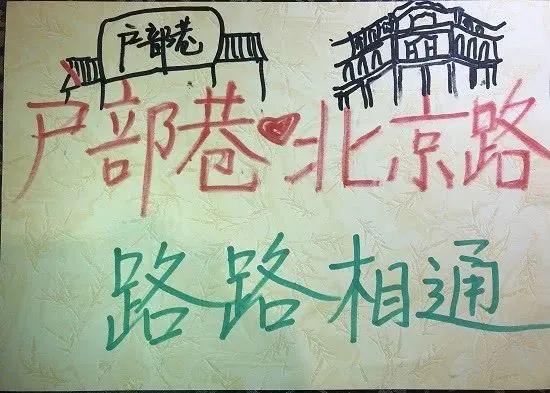 户部巷
户部巷❤北京路
路路相通